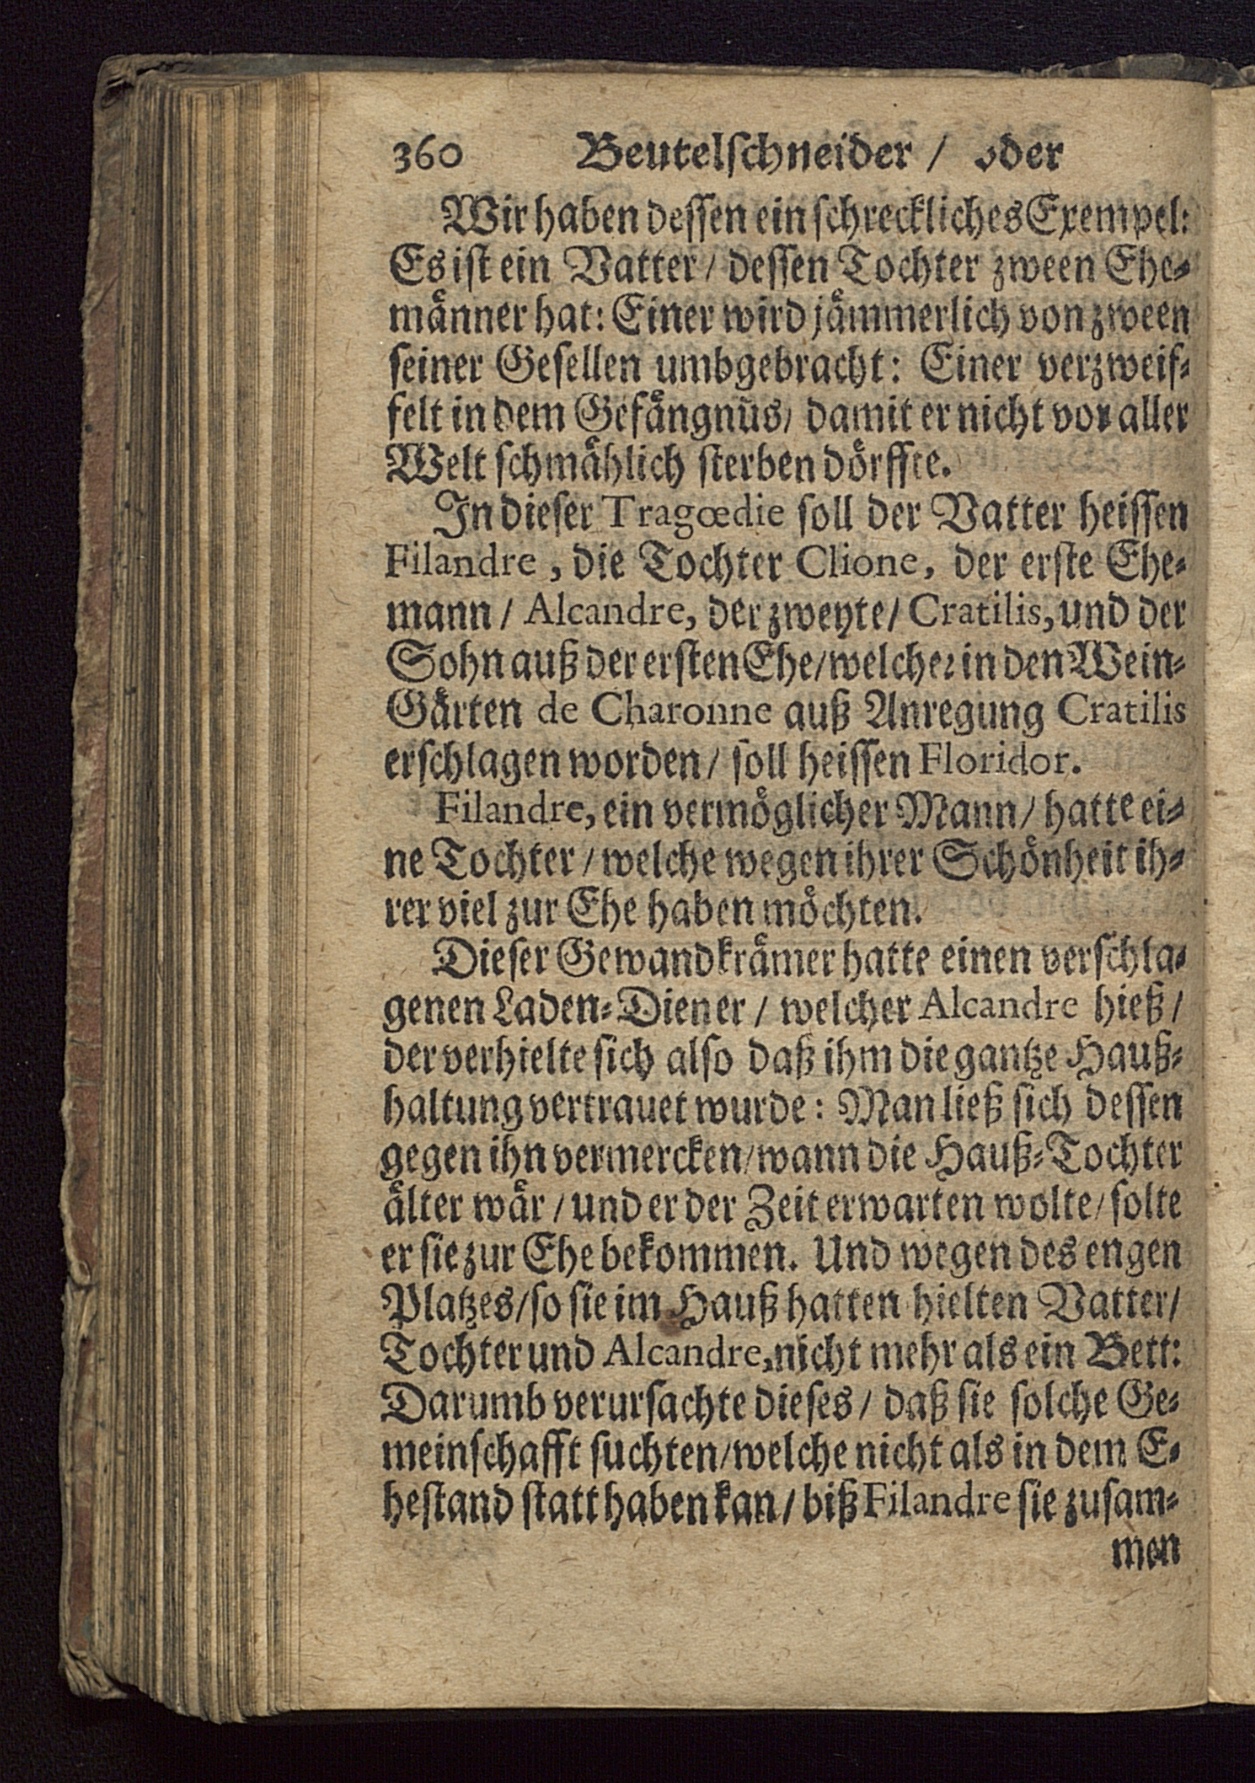 360 Beutelſchneider / oder
Wir haben deſſen ein ſchreckliches Exempel:
Es iſt ein Vatter / deſſen Tochter zween Ehe-
maͤnner hat: Einer wird jaͤmmerlich von zween
ſeiner Geſellen umbgebracht: Einer verzweif-
felt in dem Gefaͤngnuͤs / damit er nicht vor aller
Welt ſchmaͤhlich ſterben doͤrffte.
In dieſer Tragœdie ſoll der Vatter heiſſen
Filandre, die Tochter Clione, der erſte Ehe-
mann / Alcandre, der zweyte / Cratilis, und der
Sohn auß der erſten Ehe / welcher in den Wein-
Gaͤrten de Charonne auß Anregung Cratilis
erſchlagen worden / ſoll heiſſen Floridor.
Filandre, ein vermoͤglicher Mann / hatte ei-
ne Tochter / welche wegen ihrer Schoͤnheit ih-
rer viel zur Ehe haben moͤchten.
Dieſer Gewandkraͤmer hatte einen verſchla-
genen Laden-Diener / welcher Alcandre hieß /
der verhielte ſich alſo daß ihm die gantze Hauß-
haltung vertrauet wurde: Man ließ ſich deſſen
gegen ihn vermercken / wann die Hauß-Tochter
aͤlter waͤr / und er der Zeit erwarten wolte / ſolte
er ſie zur Ehe bekommen. Und wegen des engen
Platzes / ſo ſie im Hauß hatten hielten Vatter /
Tochter und Alcandre, nicht mehr als ein Bett:
Darumb verurſachte dieſes / daß ſie ſolche Ge-
meinſchafft ſuchten / welche nicht als in dem E-
heſtand ſtatt haben kan / biß Filandre ſie zuſam-
men